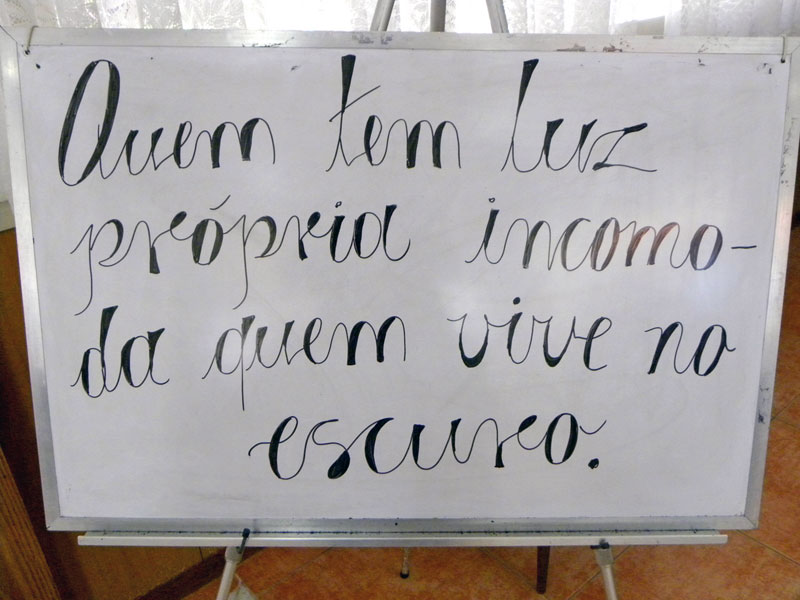 Quem tem luz
própria incomo-
da quem vive no
escuro.